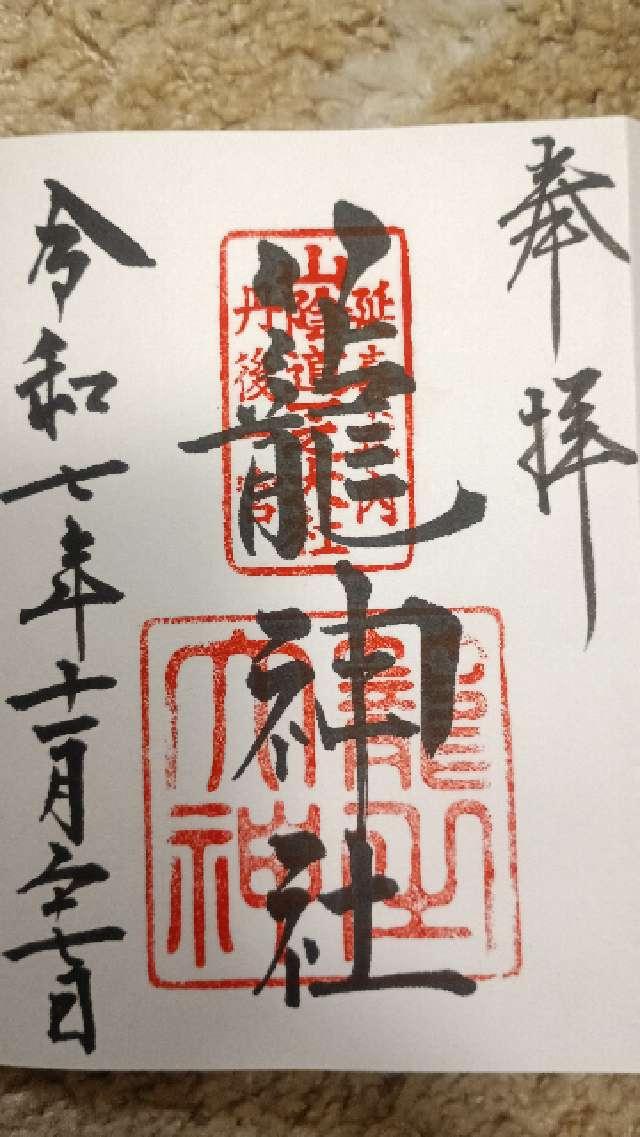 奉拝
延喜式内
山陰道一之大社
丹後一宮
籠神社
籠之
大神
令和七年十一月二十七日